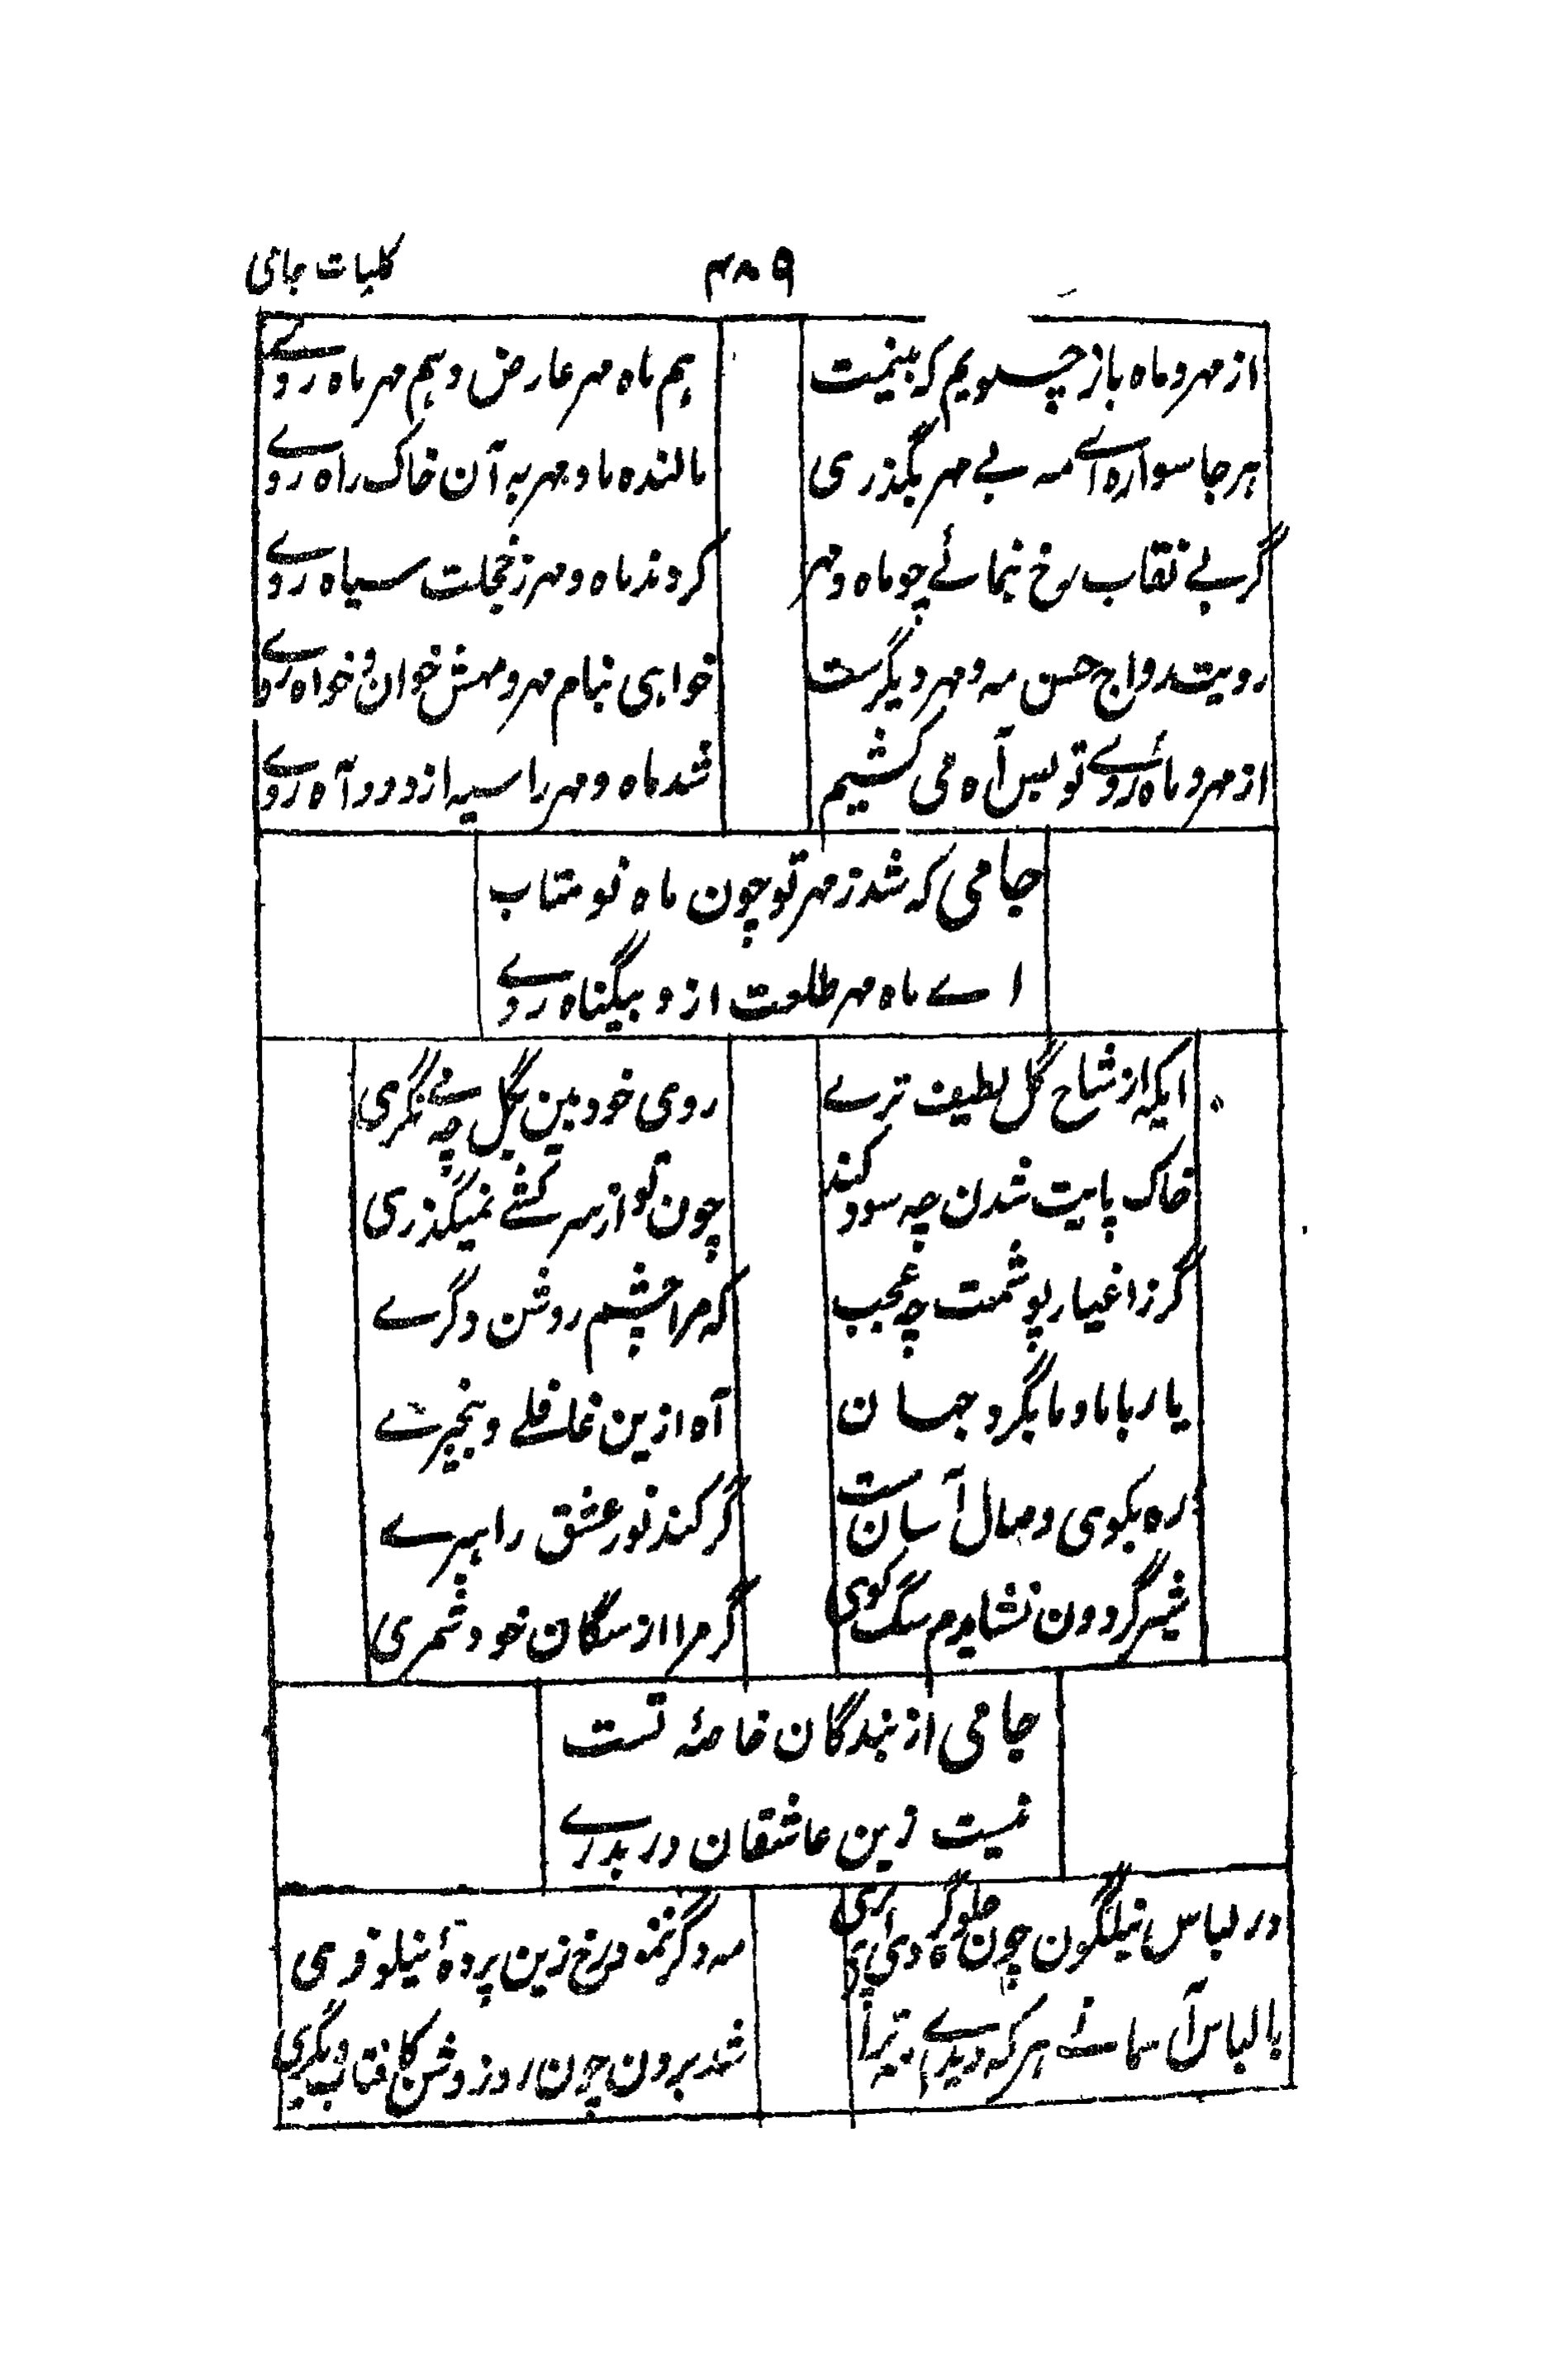 کلیات جامی
۴۸۹
از مهر و ماه باز چه گویم که بینمیت
هم ماه مهر عارض و هم مهر ماه روے
هر جا سواره اے مه بے مهر بگذری
مالنده ماه و مهر به آن خاک راه روے
گر بے نقاب رخ نمائے چو ماه و مهر
کردند ماه و مهر ز خجلت سیاه روے
رویت رواج حسن مه و مهر دیگرست
خواهی بنام مهر و مهش خوان و خواه روے
از مهر و ماه روے تو بس آه می کشیم
شد ماه و مهر را سیه از دود آه روے
جامی که شد ز مهر تو چون ماه نو متاب
اے ماه مهر طلعت ازو بیگناه روے
ایکه از شاخ گل لطیف ترے
روی خود بین بگل چه مے نگری
خاک پایت شدن چه سود کند
چون تو از سرکشے نمیگذری
گر ز اغیار پوشمت چه عجب
که مرا چشم روشن دگرے
یار با ما و ما بگرد جهان
آه ازین غافلے و بیخبرے
ره بکوی وصال آسان ست
گر کند نور عشق راهبرے
شیر گردون نشایدم سگ کوی
گر مرا از سگان خود شمری
جامی از بندگان خاصهٔ تست
نیست زین عاشقان در بدرے
در لباس نیلگون چون جلوه گر دی ای پری
مه دگر ننمود رخ زین پردهٔ نیلوفری
با لباس آسمانے هر که دیدے مه ترا
شد برون چون روز روشن کافتاب دیگری